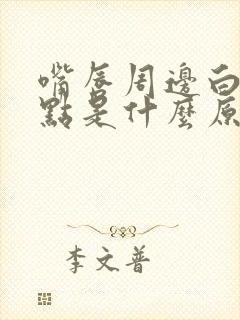 嘴唇周邊白
點是什麼原
李文普